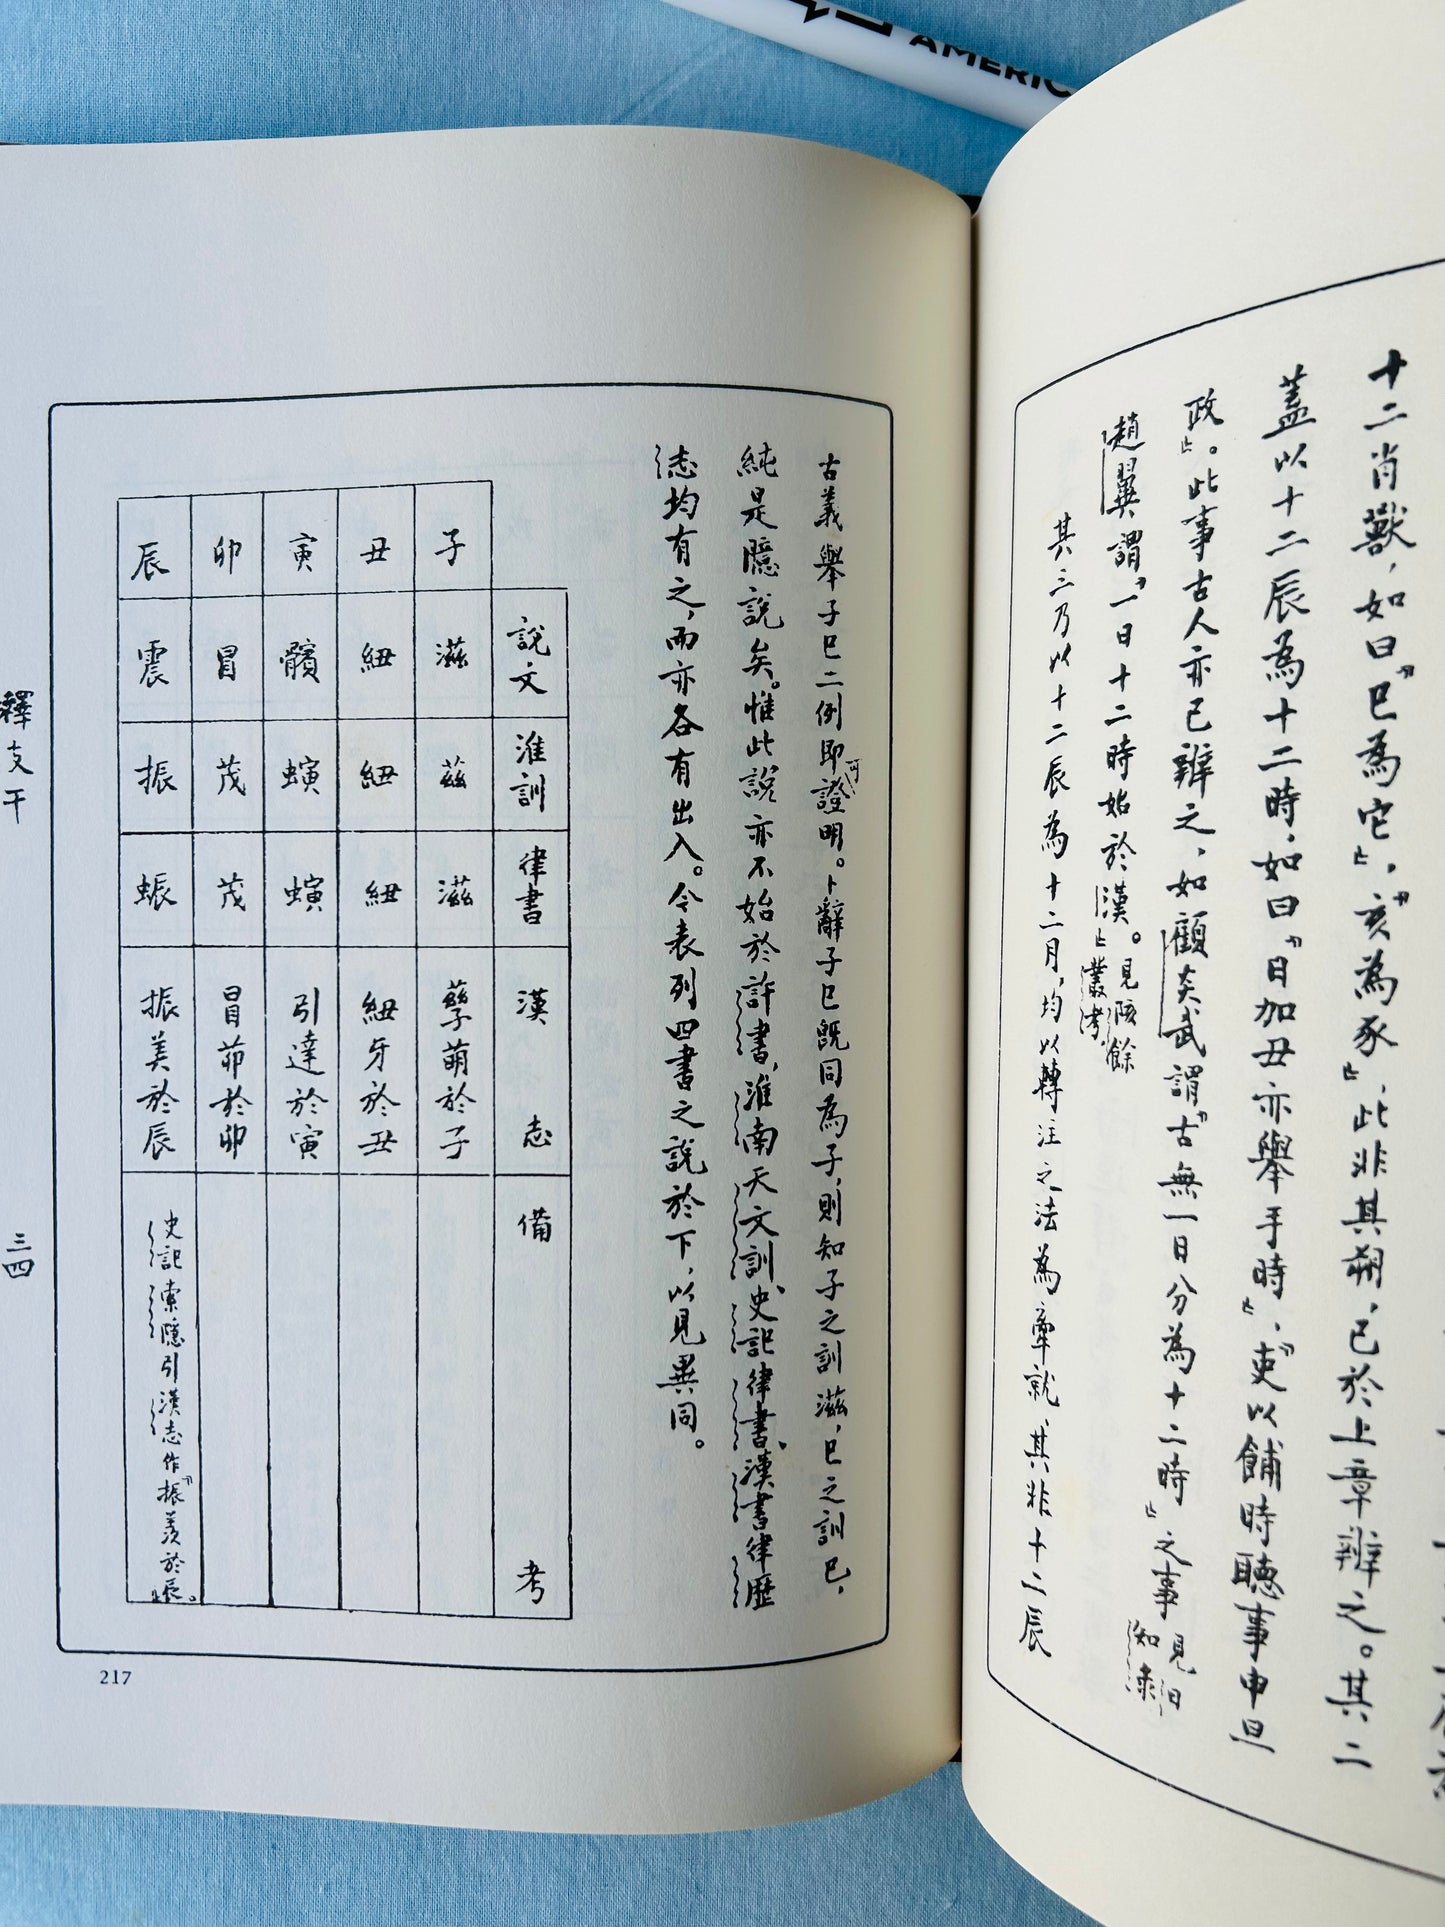 AMERIC
十二肖獸，如曰「巳為它」，「亥為豕」，此非其朔，已於上章辨之。其二
蓋以十二辰為十二時，如曰「日加丑亦舉手時」，「吏以餔時聽事申旦
政」。此事古人亦已辨之，如顧炎武謂「古無一日分為十二時」之事見日
知录
趙翼謂「一日十二時始於漢」。見陔餘
叢考，
其三乃以十二辰為十二月，均以轉注之法為牽就，其非十二辰
古義舉子巳二例即可證明。卜辭子巳既同為子，則知子之訓滋，巳之訓巳，
純是臆說矣。惟此說亦不始於許書，淮南天文訓、史記律書、漢書律歷
志均有之，而亦各有出入。今表列四書之說於下，以見異同。
說文 淮訓 律書 漢志 備考
子 滋 茲 滋 孳萌於子
丑 紐 紐 紐 紐牙於丑
寅 髕 螾 螾 引達於寅
卯 冒 茂 茂 冒茆於卯
辰 震 振 蜄 振美於辰 史記索隱引漢志作「振羨於辰」。
釋支干
三四
217